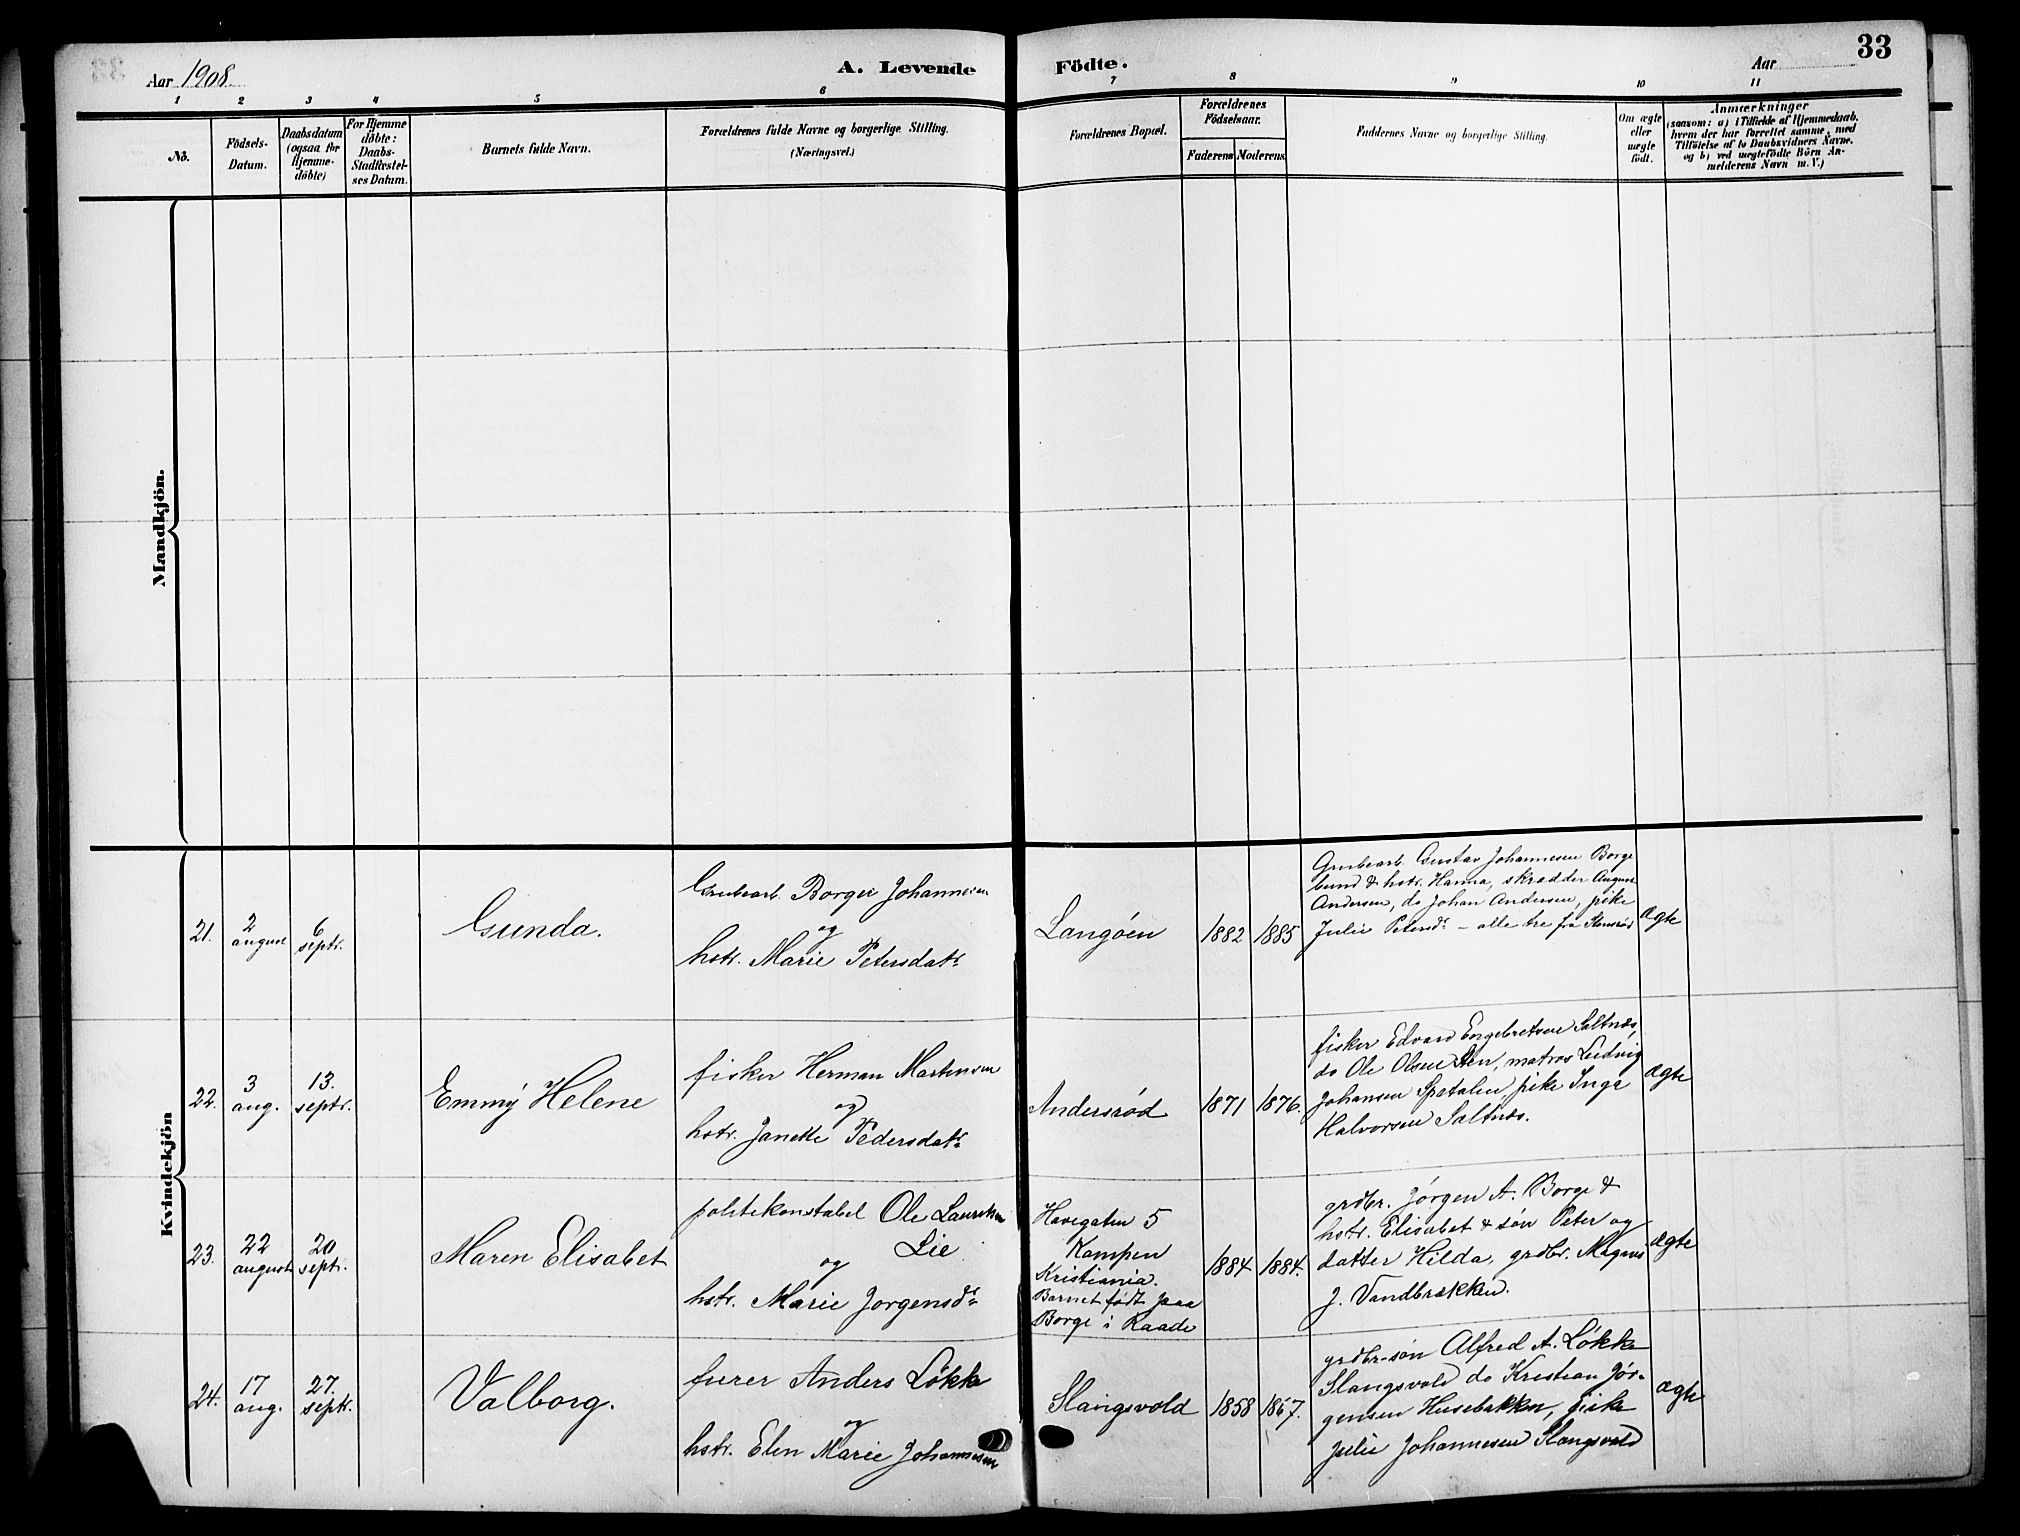 33
Aar 1908.
A. Levende
Födte.
Aar
1
2
3
4
5
6
7
8
9
10
11
No.
Födsels-
Datum.
Daabsdatum
(ogsaa for
Hjemme-
döbte)
For Hjemme
döbte:
Daabs-
Stadfæstel-
ses Datum.
Barnets fulde Navn.
Forældrenes fulde Navne og borgerlige Stilling.
(Næringsvei.)
Forældrenes Bopæl.
Forældrenes
Födselsaar.
Faderens
Moderens
Faddernes Navne og borgerlige Stilling.
Om ægte
eller
uægte
födt.
Anmærkninger
(saasom: a) i Tilfælde af Hjemmedaab.
hvem der har forrettet samme, med
Tilföielse af to Daabsvidners Navne,
og b) ved uægtefödte Börn An-
melderens Navn m. V.)
Mandkjön.
Kvindekjön
21.
2
august
6
septr.
Gunda.
Grubearb. Borger Johannesen
og
hstr. Marie Petersdatr
Langöen
1882
1885
Grubearb. Gustav Johannesen Borge
bund & hstr. Hanna, skrædder August
Andersen, do Johan Andersen, pike
Julie Petersdr – alle tre fra
ægte
22.
3
aug.
13.
septr.
Emmy Helene
fisker Herman Martensen
og
hstr. Janette Pedersdatr
Andersrød
1871
1876.
fisker Edvard Engebretsen Saltnæs,
do Ole Olsen Sten, matros Ludvig
Johansen Spetalen, pike Inga
Halvorsen Saltnæs.
ægte
23.
22
august
20
septr.
Maren Elisabet
politikonstabel Ole Lauritsen
Lie
og
hstr. Marie Jørgensdr
Havegaten 5
Kampen
Kristiania.
Barnet født paa
Borge i Raade
1884
1884.
grdbr. Jørgen A. Borge &
hstr. Elisabet & søn Peter og
datter Hilda, grdbr. Magnus
J. Vandbrækken.
ægte
24.
17
aug.
27.
septr.
Valborg.
furer Anders Løkke
og
hstr. Elen Marie Johannesen
Slangsvold
1858
1867.
grdbr-søn Alfred A. Løkke
Slangsvold do Kristian Jør-
gensen Husebakken, pike
Julie Johannesen Slangsvold
ægte